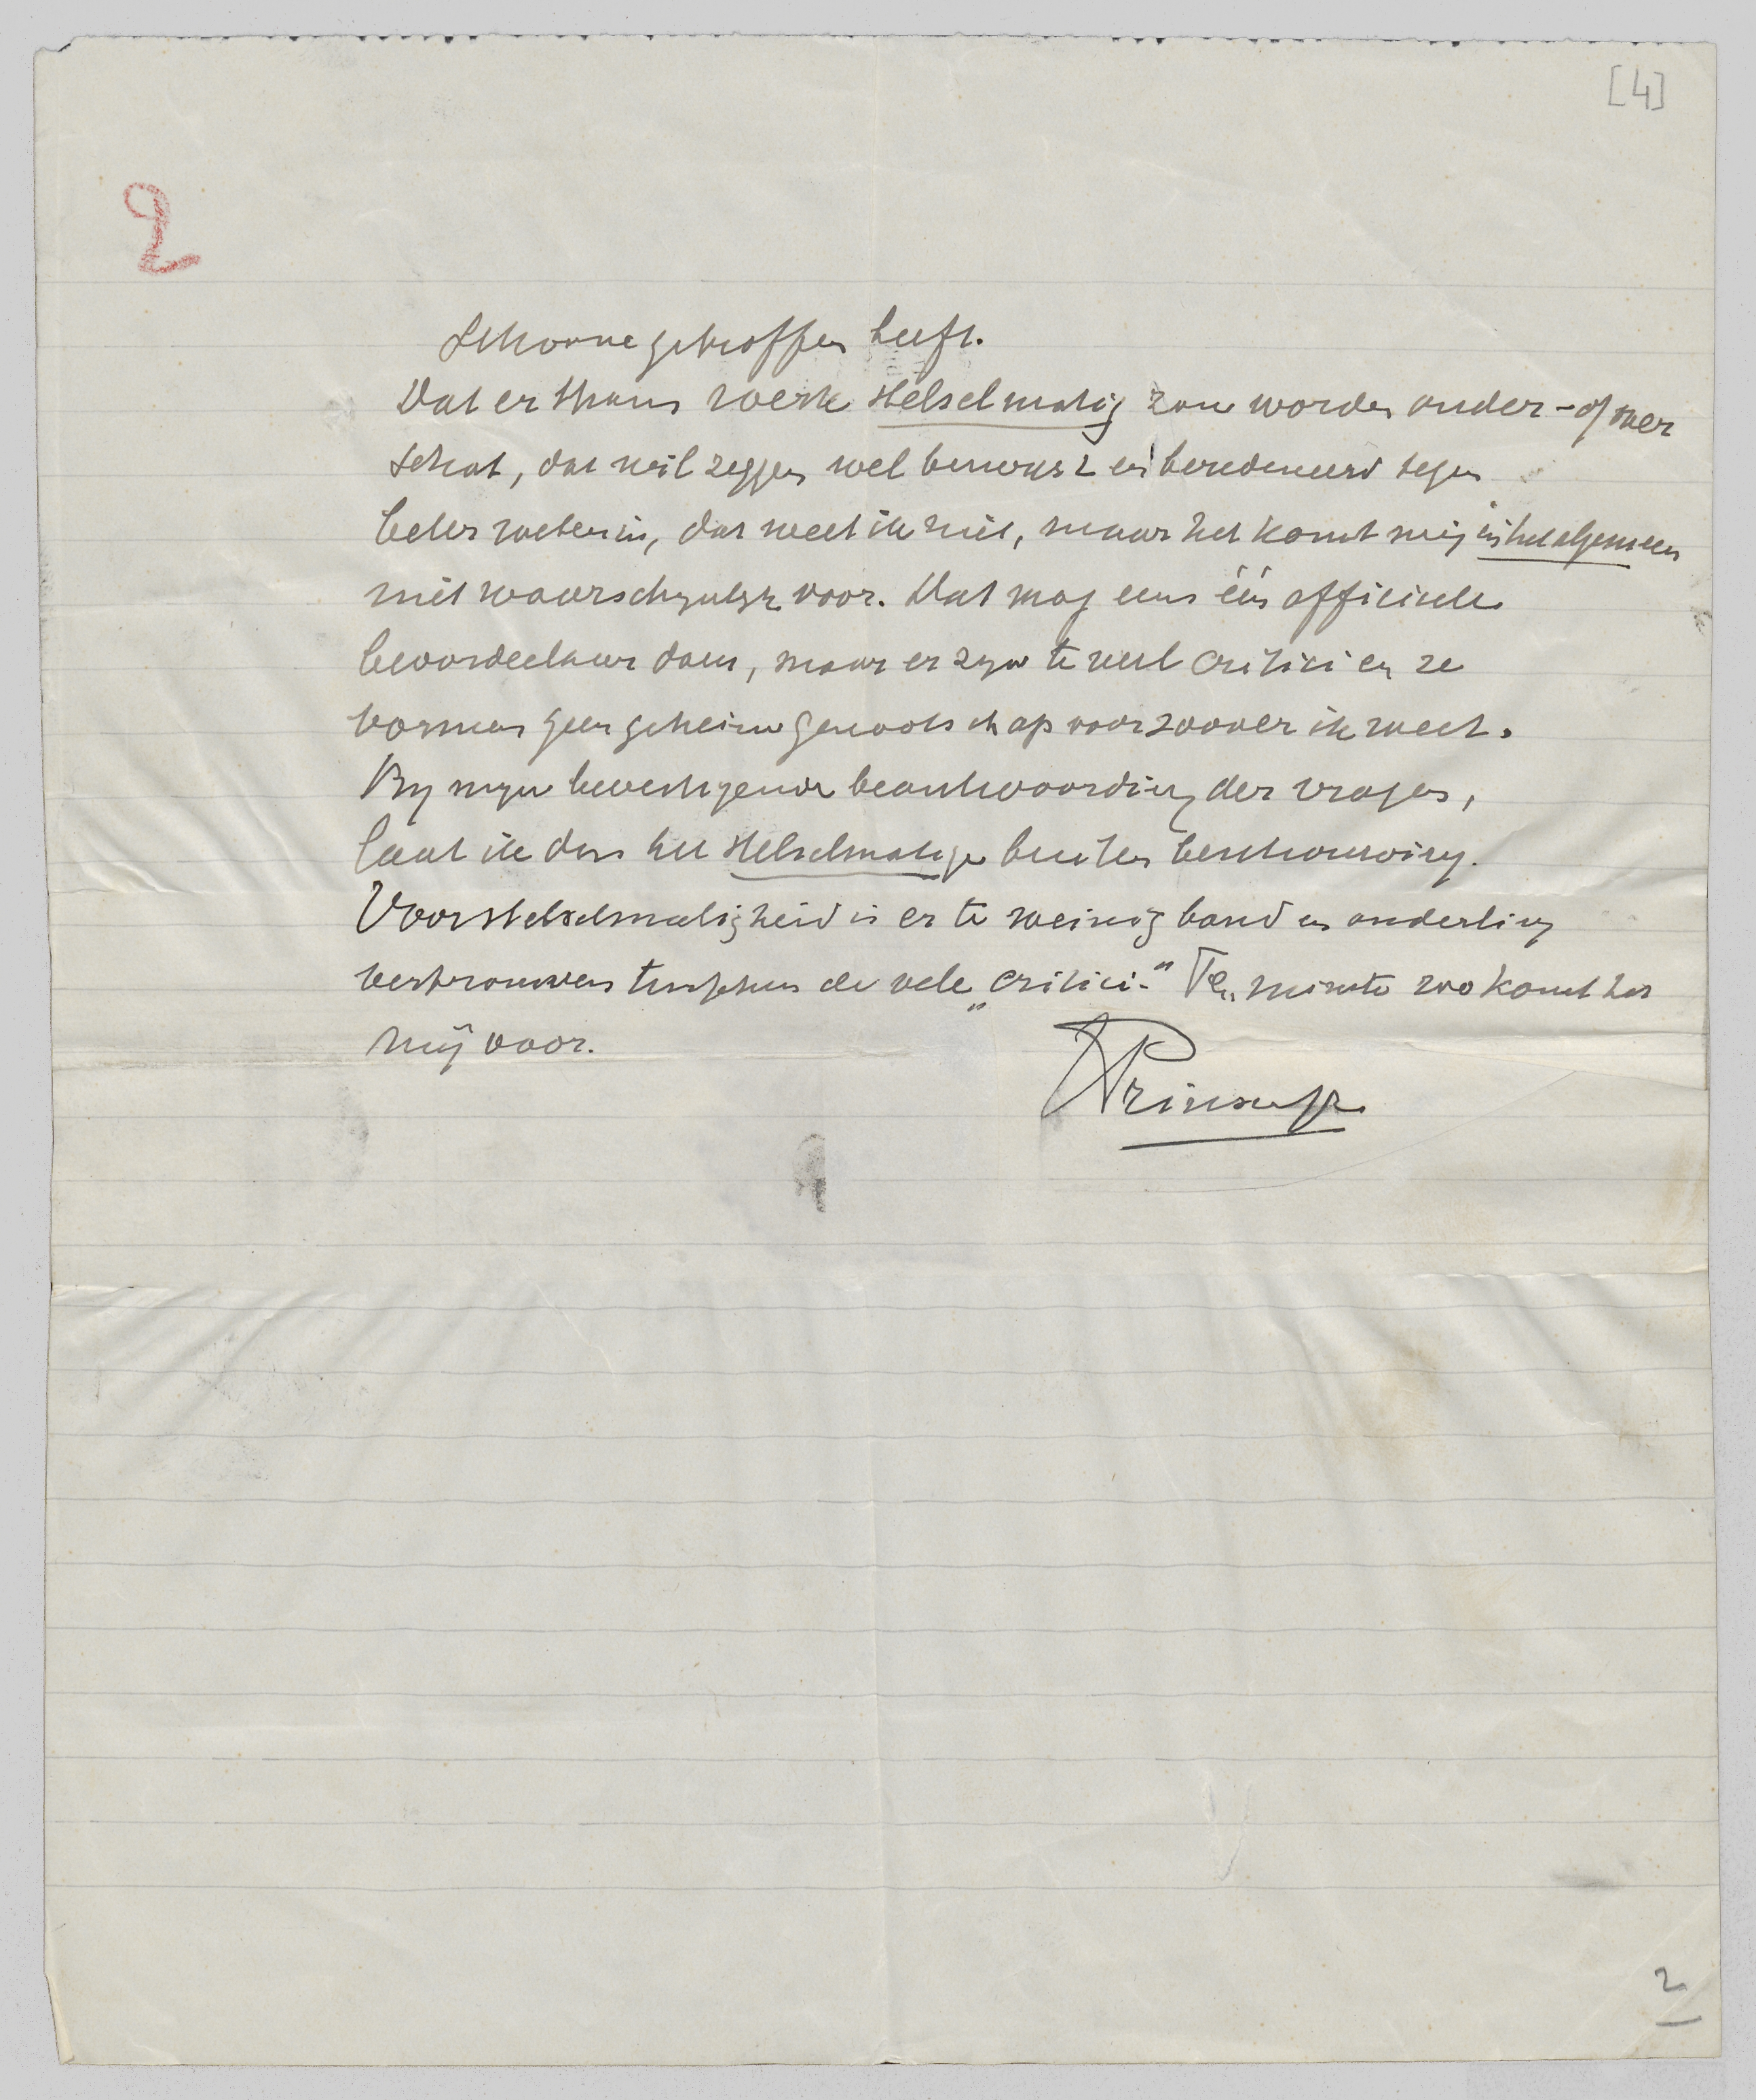 [4]
2
Schoone getroffen heeft.
Dat er thans werk stelselmatig zou worden onder- of over
schat, dat wil zeggen wel bewust en beredeneerd tegen
beter weten in, dat weet ik niet, maar het komt mij in het algemeen
niet waarschynlyk voor. Dat mag eens één officieele
beoordeelaar doen, maar er zyn te veel critici en ze
vormen geen geheim genootschap voor zoover ik weet.
By myn bevestigende beantwoording der vragen,
laat ik dus het stelselmatige buiten beschouwing.
Voor stelselmatigheid is er te weinig band en onderling
vertrouwen tusschen de vele „critici.” Ten minste zoo komt het
mij voor.
2